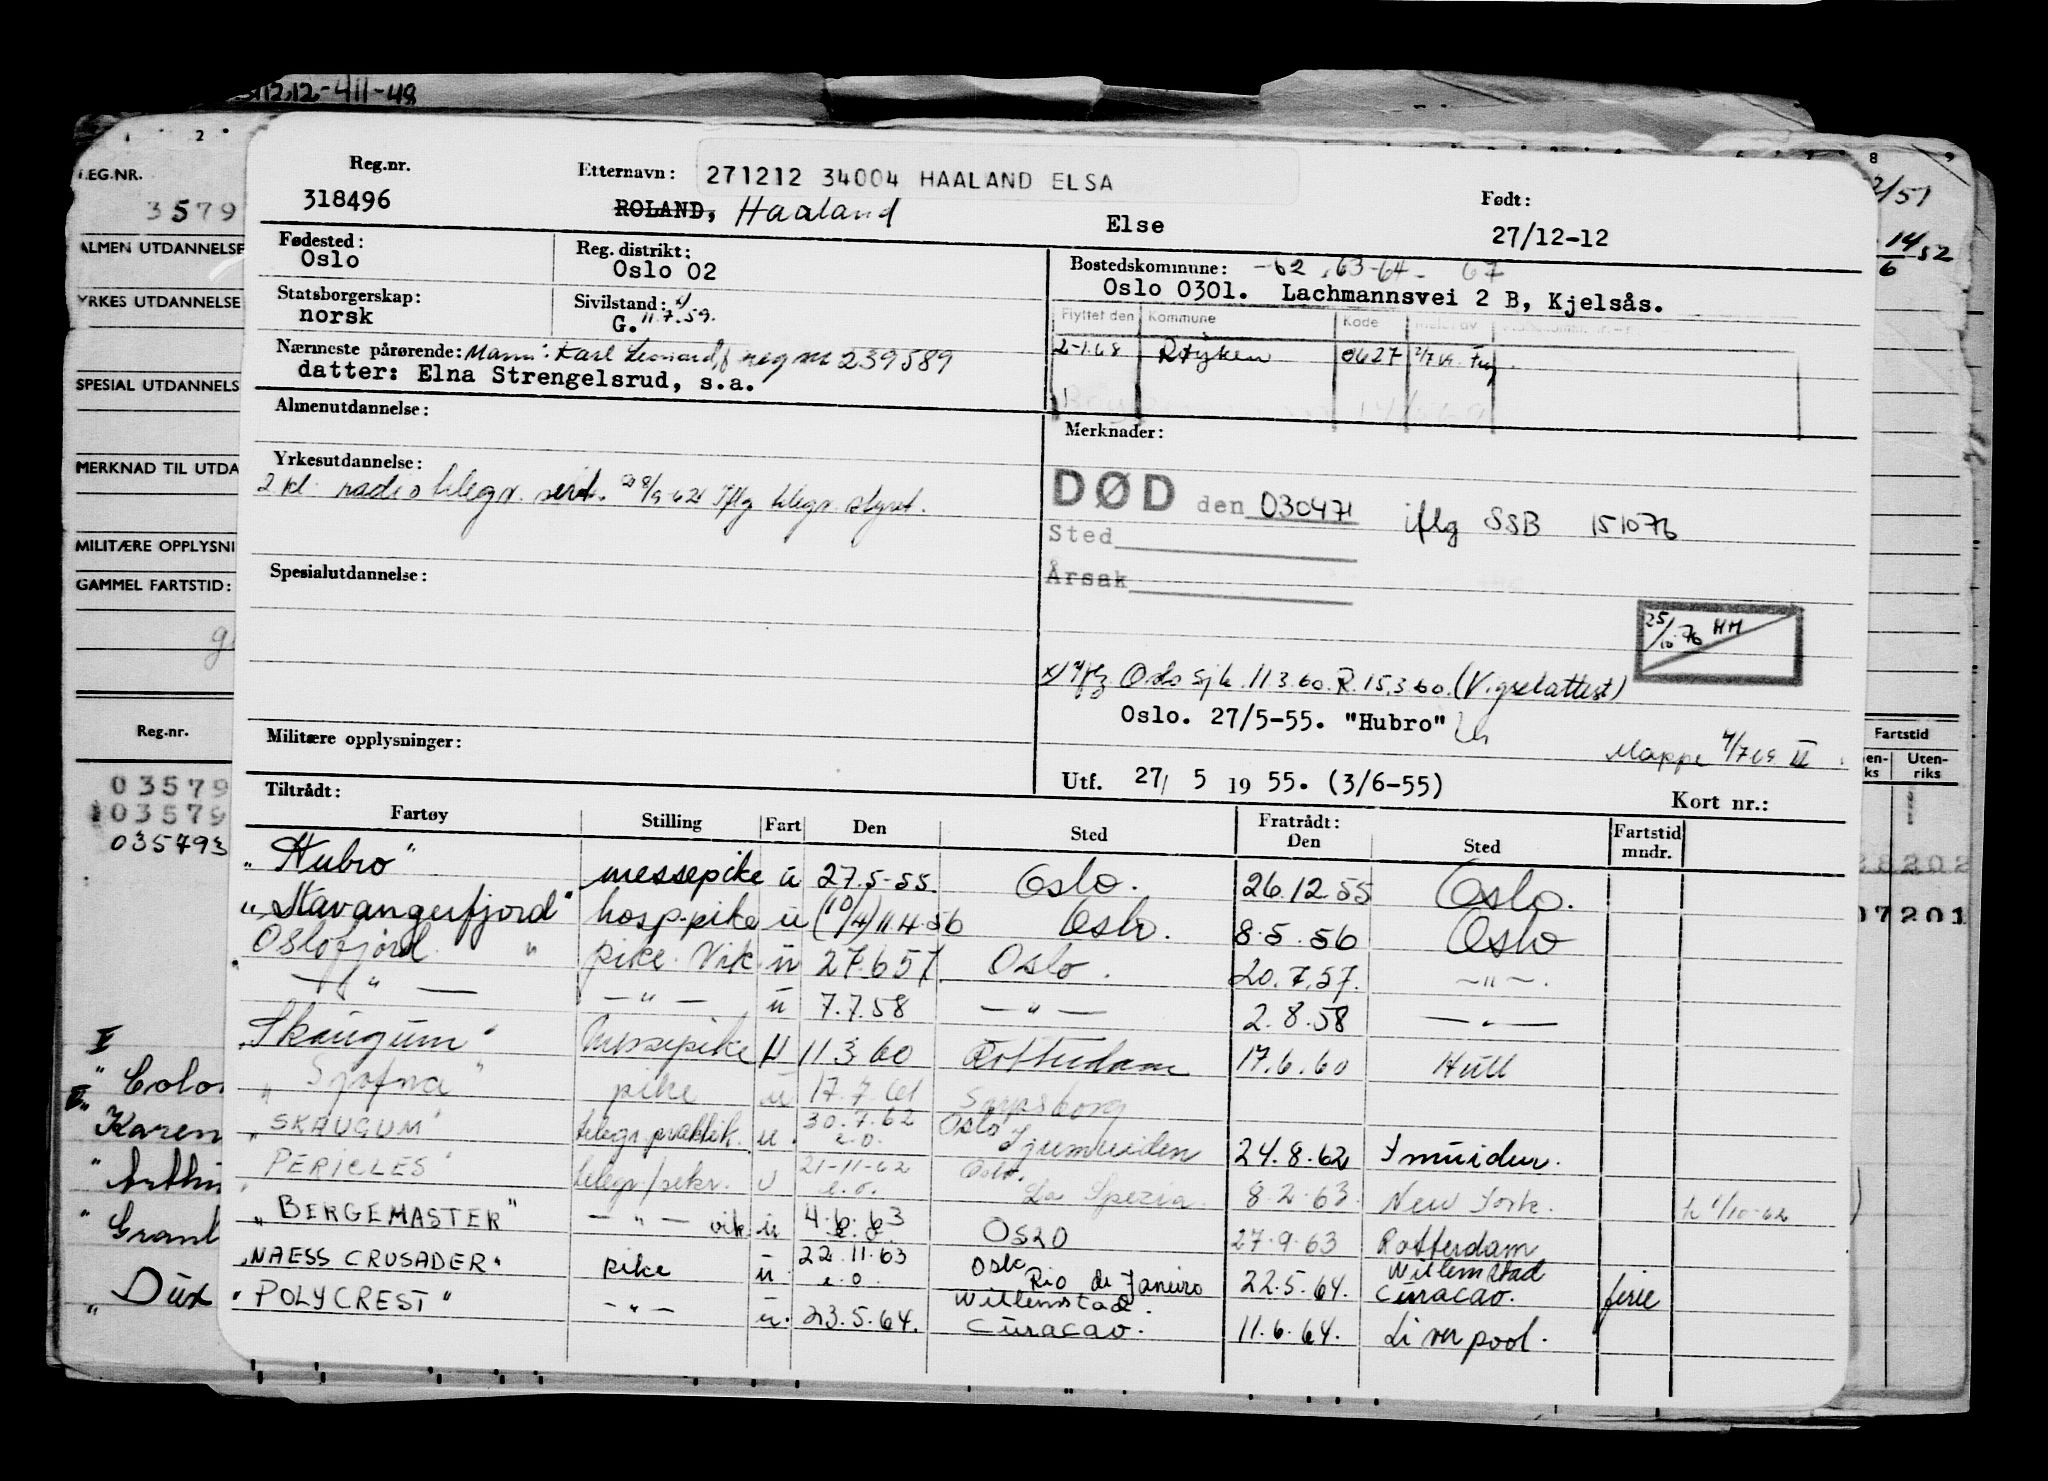 12.12-411-48
Reg.nr.
318496
Etternavn: 271212 34004 HAALAND ELSA
ROLAND, Haaland
Else
Født:
27/12-12
Fødested:
Oslo
Reg. distrikt:
Oslo 02
Bostedskommune: -62, 63-64- 67
Oslo 0301. Lachmannsvei 2 B, Kjelsås.
Statsborgerskap:
norsk
Sivilstand: x/
G. 11.7.59.
Flyttet den Kommune Kode
2-1.68 Røyken 0627
Nærmeste pårørende: Mann: Karl Leonard, reg nr 239589
datter: Elna Strengelsrud, s.a.
Almenutdannelse:
Merknader:
Yrkesutdannelse:
2 kl. radiotelegr. sert. 8/9-62 Iflg telegr. styret.
DØD den 030471 iflg SSB 151076
Sted
Årsak
Spesialutdannelse:
25/10-76 HM
x) Iflg. Oslo Sjk. 11.3.60. R. 15.3.60. (Vigselattest)
Oslo. 27/5-55. "Hubro"
Militære opplysninger:
Mappe 4/7 69
Utf. 27/ 5 1955. (3/6-55)
Kort nr.:
Tiltrådt:
Fartøy Stilling Fart Den Sted Fratrådt: Den Sted Fartstid mndr.
"Hubro" messepike u 27.5-55. Oslo. 26.12.55 Oslo.
"Stavangerfjord" hosp.pike u (10/4) 11.4.56 Oslo. 8.5.56 Oslo
Oslofjord " pike. Vik u 27.6.57 Oslo. 20.7.57. — " —.
— " — — " — u 7.7.58 — " — 2.8.58 — " —
"Skaugum" Messepike U 11.3.60 Rotterdam 17.6.60 Hull
"Sjofna" pike u 17.7.61 Sarpsborg
"SKAUGUM" telegr. praktik. u. 30.7.62 e.o. Oslo Ijumuiden 24.8.62 Imuiden.
"PERICLES" telegr/pike. u 21-11-62 e.o. Oslo. La Spezia. 8.2.63. New York. 1/10-62
"BERGEMASTER" — " — vik. u 4.6.63 e.o. OSLO 27.9.63 Rotterdam
"NAESS CRUSADER" pike u 22.11.63 e.o. Oslo Rio de Janeiro 22.5.64. Willemstad Curacao. ferie
"POLYCREST" — " — u. 23.5.64. Willemstad Curacao. 11.6.64. Liverpool.
REG.NR.
3579
ALMEN UTDANNELSE
YRKES UTDANNELSE
SPESIAL UTDANNELS
MERKNAD TIL UTDA
MILITÆRE OPPLYSNI
GAMMEL FARTSTID:
Reg.nr.
03579
03579
035793
" Colo
Karen
" Arthu
" Grant
" Dux
2
8 9
2/51
14/6 52
Fartstid
en-ks Uten-riks
28202
07201